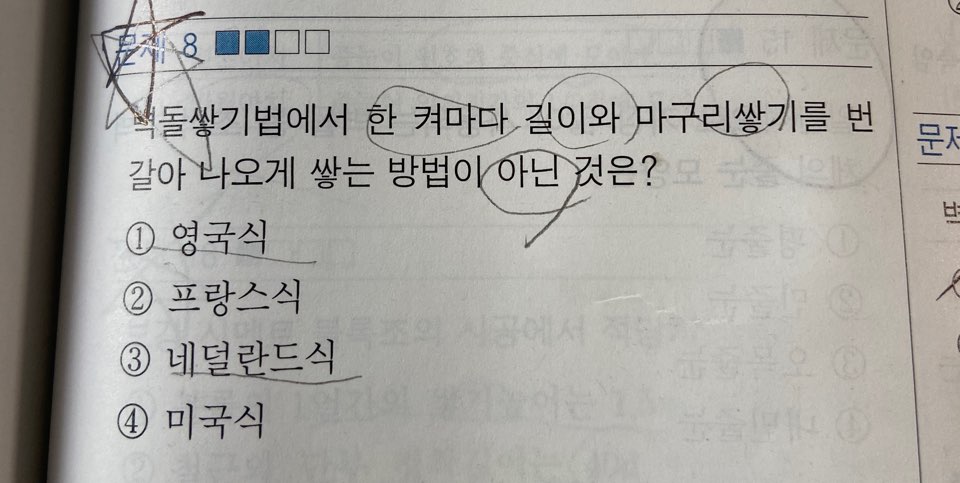 문제 8
벽돌쌓기법에서 한 켜마다 길이와 마구리쌓기를 번
갈아 나오게 쌓는 방법이 아닌 것은?
① 영국식
② 프랑스식
③ 네덜란드식
④ 미국식
문제